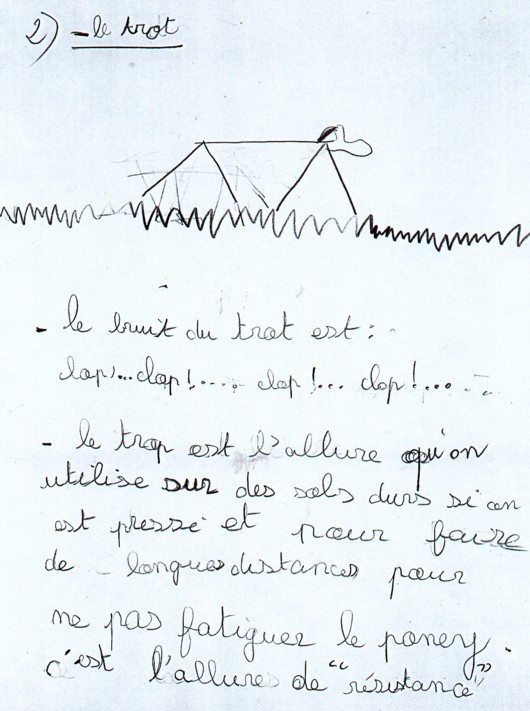 2) - le trot
- le bruit du trot est :
clop!...clop!.... clop!... clop!....
- le trop est l'allure qu'on
utilise sur des sols durs si on
est pressé et pour faire
de longues distances pour
ne pas fatiguer le poney.
c'est l'allure de "résistance"